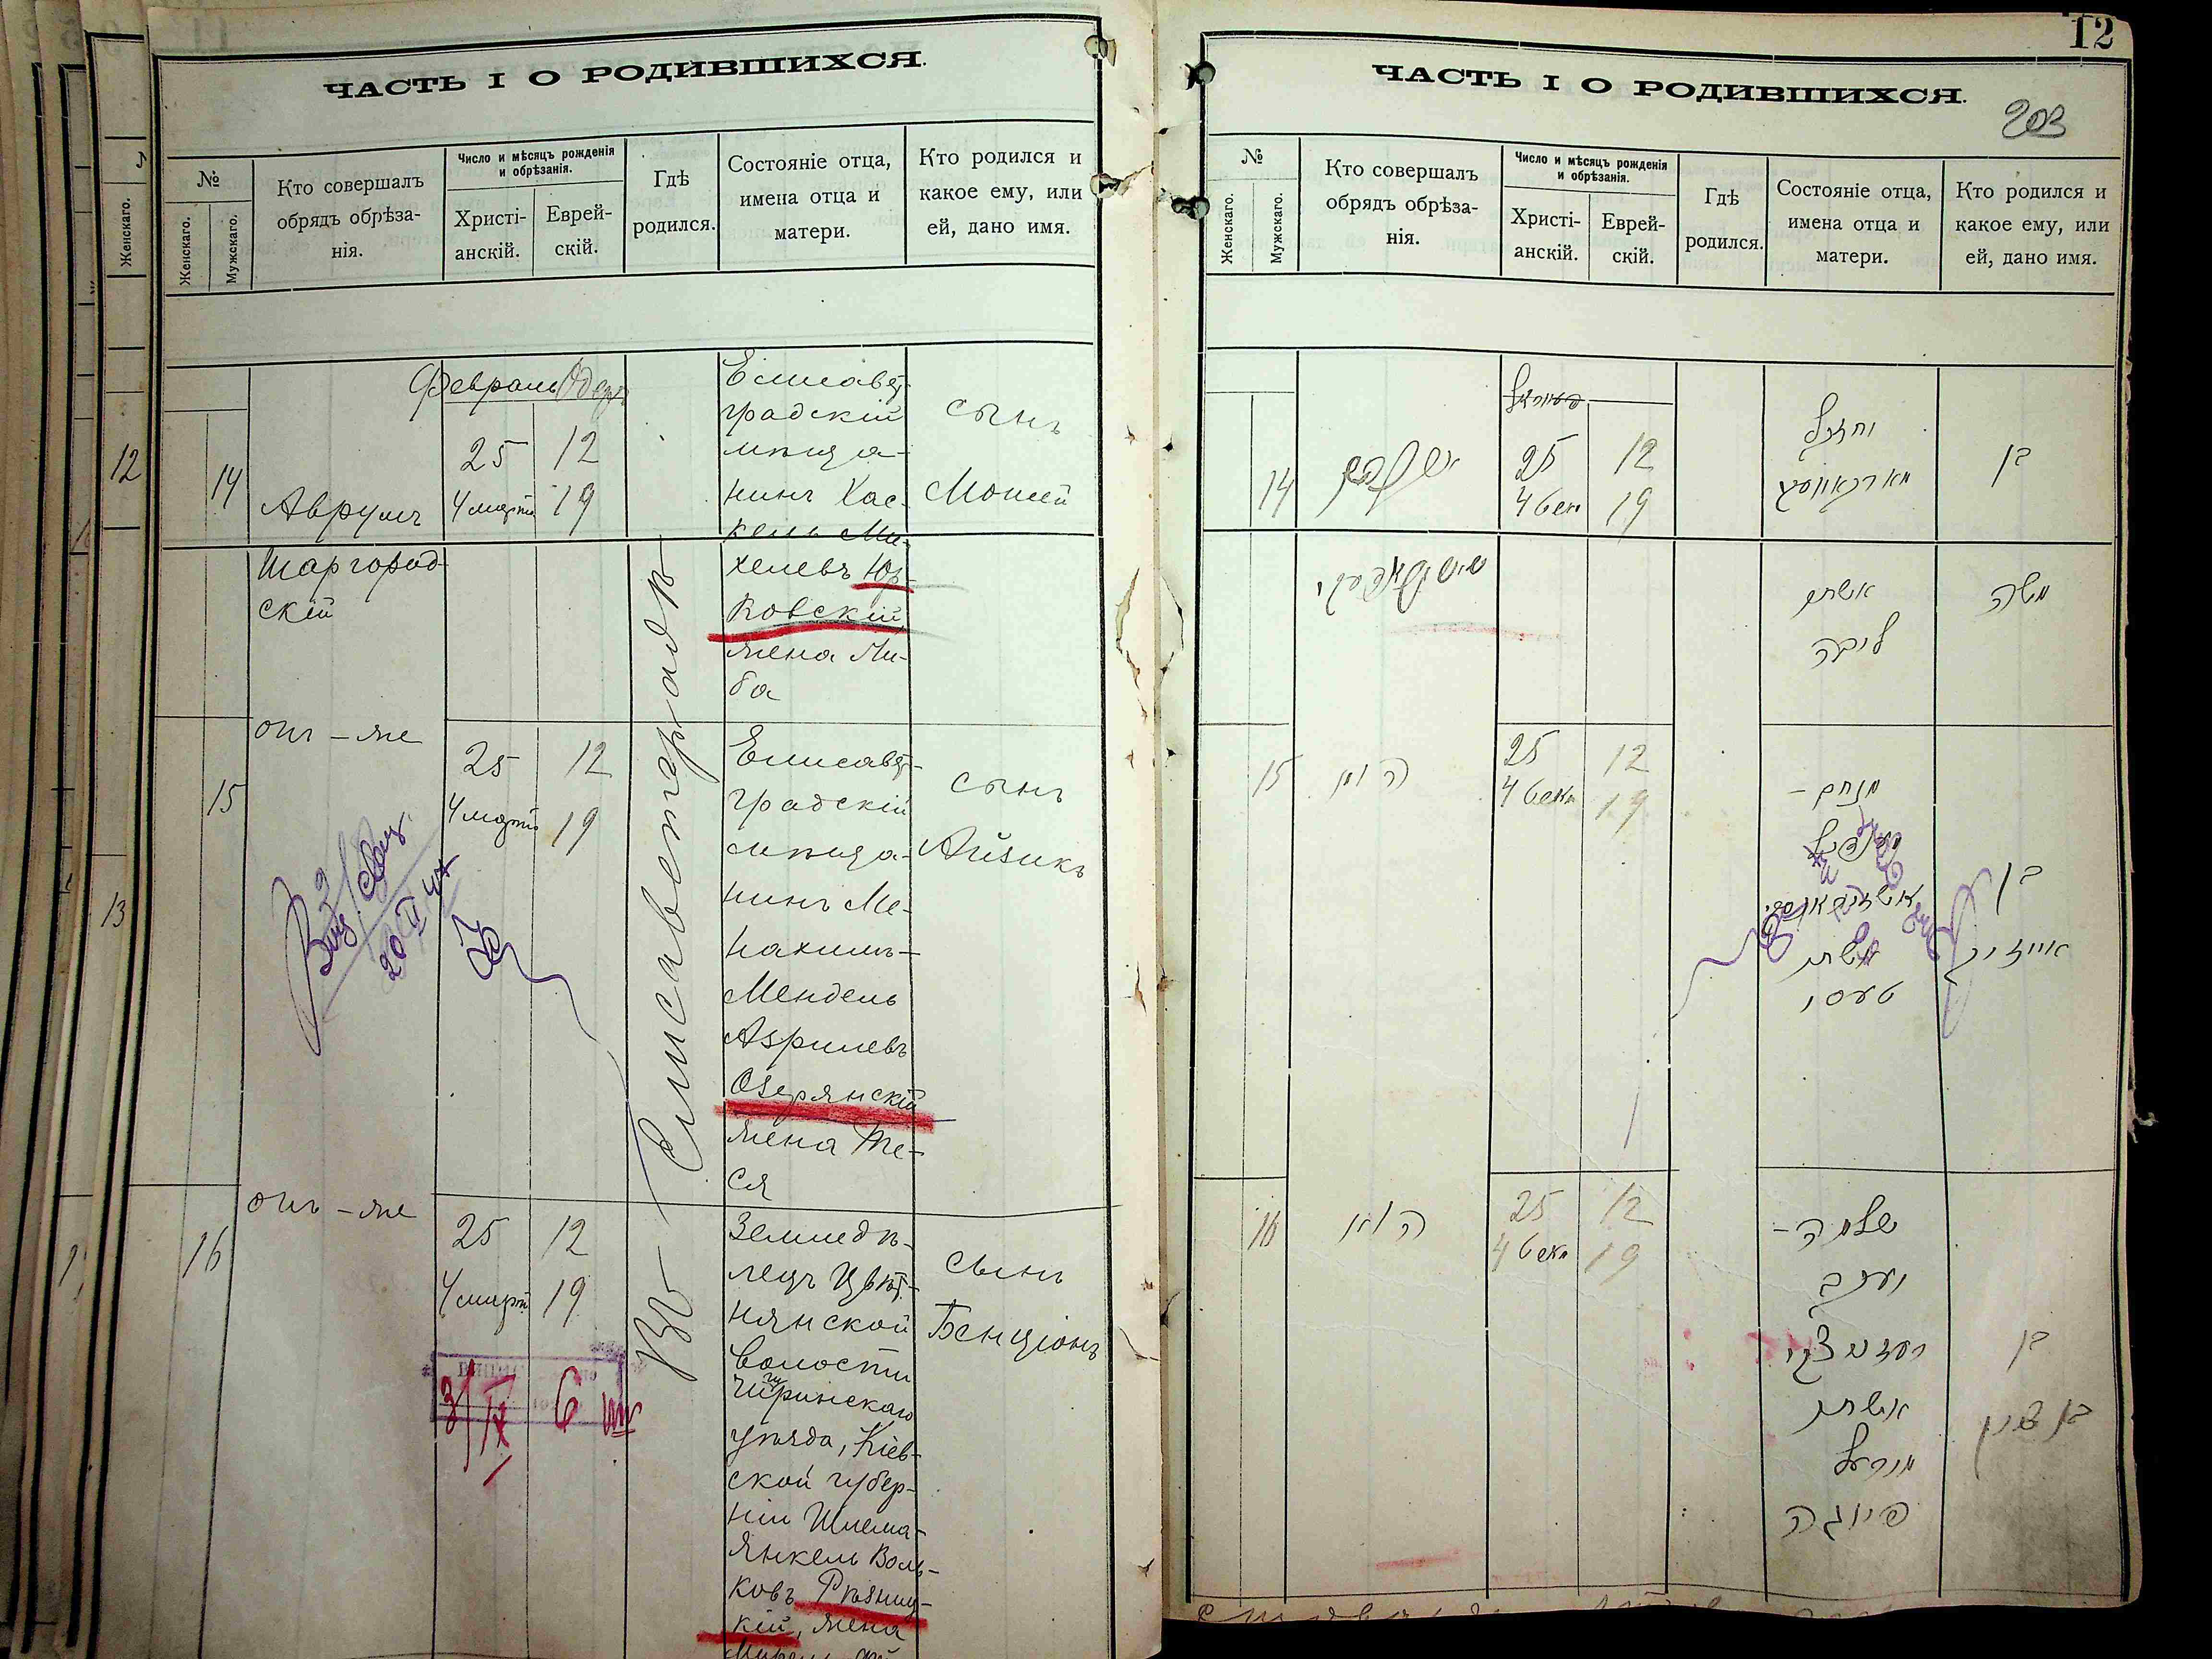 ЧАСТЬ I О РОДИВШИХСЯ.
№
Женскаго.
Мужскаго.
Кто совершалъ
обрядъ обрѣза-
нія.
Число и мѣсяцъ рожденія
и обрѣзанія.
Христі-
анскій.
Еврей-
скій.
Гдѣ
родился.
Состояніе отца,
имена отца и
матери.
Кто родился и
какое ему, или
ей, дано имя.
Февраль Одеръ
14
Аврумъ
Шаргород-
скій
25
4 марта
12
19
Въ Елисаветградѣ
Елисавет-
градскій
мѣща-
нинъ Хас-
кель Ми-
хелевъ Юр-
ковскій
жена Ли-
ба
сынъ
Мошей
15
онъ-же
25
4 марта
12
19
Елисавет-
градскій
мѣща-
нинъ Ме-
нахимъ-
Мендель
Азрилевъ
Озерянскій
жена Те-
ся
сынъ
Айзикъ
20 II 47
16
онъ-же
25
4 марта
12
19
Земледѣ-
лецъ Цвѣт-
нянской
волости
Чигиринскаго
уѣзда, Кіев-
ской губер-
ніи Шлема-
Янкель Воль-
ковъ Рѣзниц-
кій, жена
сынъ
Бенціонъ
12
13
12
203
ЧАСТЬ I О РОДИВШИХСЯ.
№
Женскаго.
Мужскаго.
Кто совершалъ
обрядъ обрѣза-
нія.
Число и мѣсяцъ рожденія
и обрѣзанія.
Христі-
анскій.
Еврей-
скій.
Гдѣ
родился.
Состояніе отца,
имена отца и
матери.
Кто родился и
какое ему, или
ей, дано имя.
14
25
12
19
אשתו
ליבה
בן
משה
15
הנ"ל
25
12
19
מנחם-
אשתו
טעסי
בן
אייזיק
16
הנ"ל
25
12
19
שלמה-
יעקב
אשתו
בן
בן ציון